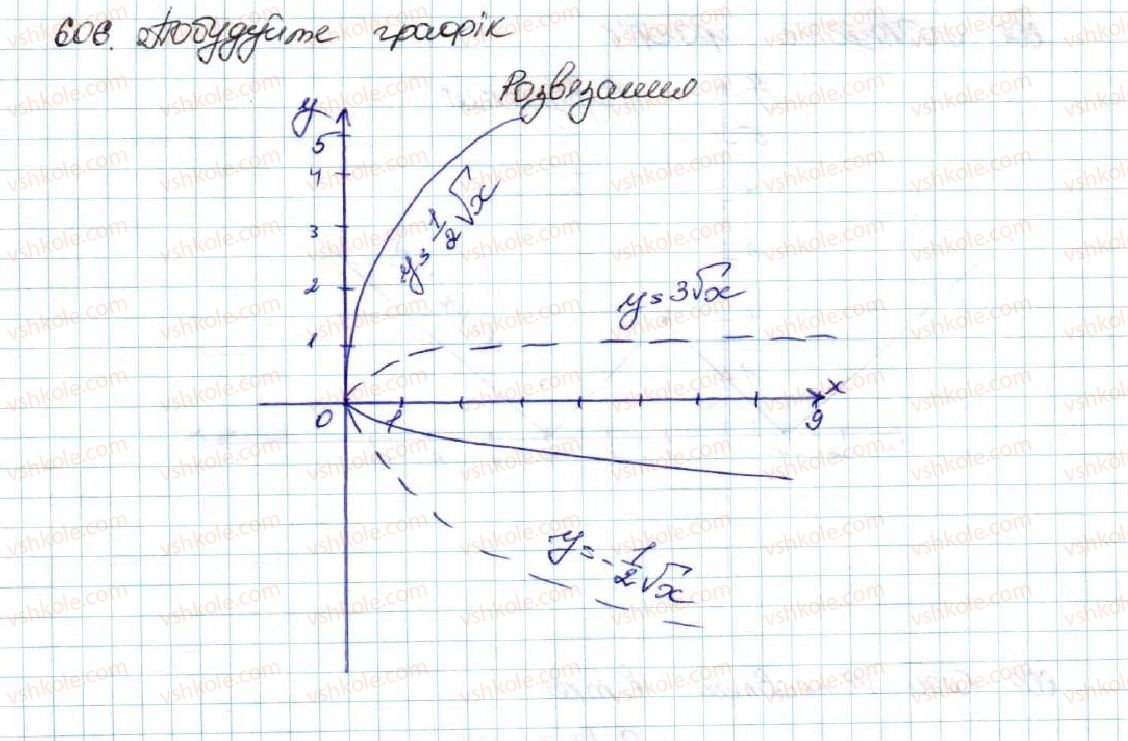 606. Побудуйте графік
Розв'язання
y
5
4
3
2
1
y = 1/2 √x
y = 3√x
x
0
1
9
y = -1/2 √x
vshkole.com